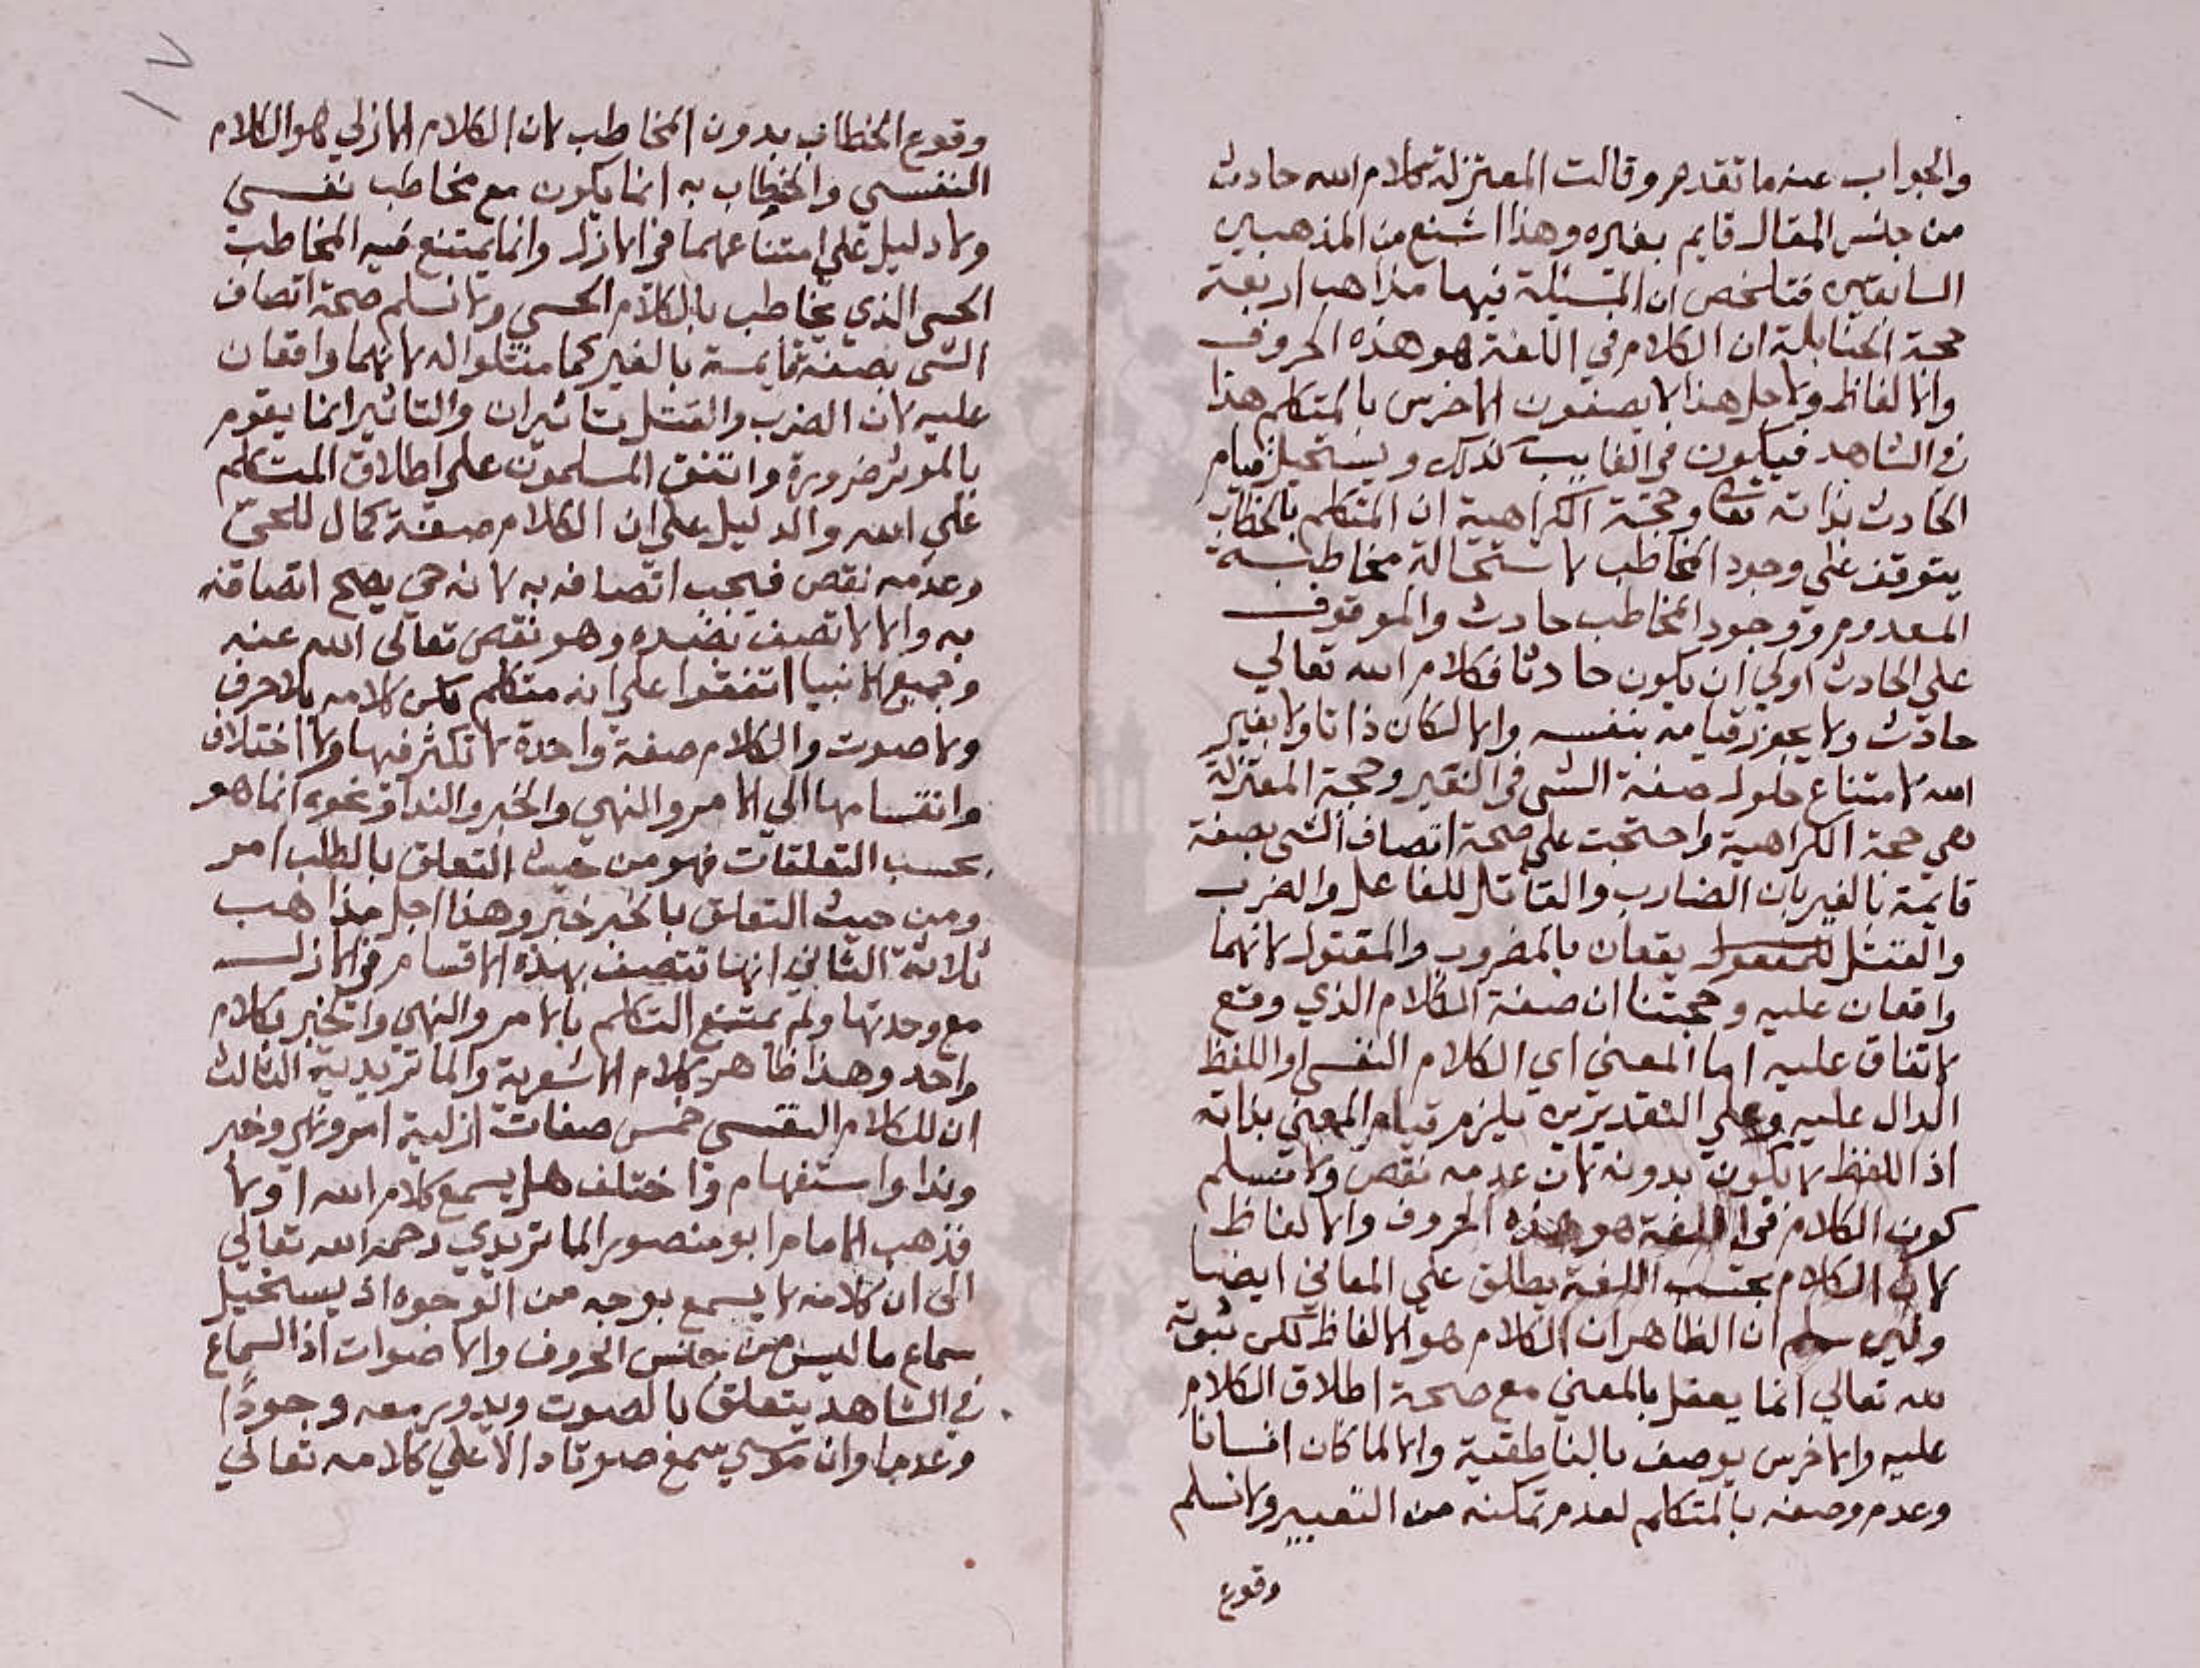 والجواب عنه ما تقدم وقالت المعتزلة كلام الله حادث
من جنس المقال قايم بغيره وهذا اشنع من المذهبين
السابقين فتلخص ان المسئلة فيها مذاهب اربعة
حجة الحنابلة ان الكلام في اللغة هو هذه الحروف
والالفاظ ولاجل هذا لا يصفون الاخرس بالمتكلم هذا
في الشاهد فيكون في الغايب كذلك ويستحيل قيام
الحادث بذاته تعا وحجة الكراهية ان المتكلم بالخطاب
يتوقف علي وجود المخاطب لاستحالة مخاطبة
المعدوم ووجود المخاطب حادث والموقوف
علي الحادث اولي ان يكون حادثا فكلام الله تعالي
حادث ولا يجوز قيامه بنفسه والا لكان ذاتا ولا بغير
الله لامتناع حلول صفة الشي في الغير وحجة المعتزلة
هي حجة الكراهية واحتجت علي صحة اتصاف الشي بصفة
قايمة بالغير بان الضارب والقاتل للفاعل والضرب
والقتل للمفعول يقعان بالمضروب والمقتول لانهما
واقعان عليه وحجتنا ان صفة الكلام الذي وقع
لاتفاق عليه اما المعني اي الكلام النفسي او اللفظ
الدال عليه وعلي التقديرين يلزم قيام المعني بذاته
اذ اللفظ لا يكون بدونه لان عدمه نقص ولا نسلم
كون الكلام في اللغة هو هذه الحروف والالفاظ
لان الكلام بحسب اللغة يطلق علي المعاني ايضا
ولين سلم ان الظاهر ان الكلام هو الالفاظ لكن ثبوته
لله تعالي انما يعقل بالمعني مع صحة اطلاق الكلام
عليه والاخرس يوصف بالناطقية والا لما كان انسانا
وعدم وصفه بالمتكلم لعدم تمكنه من التعبير ولا نسلم
وقوع
١٧
وقوع الخطاب بدون المخاطب لان الكلام الازلي هو الكلام
النفسي والخطاب به انما يكون مع مخاطب نفسي
ولا دليل علي امتناعهما في الازل وانما يمتنع فيه المخاطب
الحسي الذي يخاطب بالكلام الحسي ولا نسلم صحة اتصاف
الشي بصفة قايمة بالغير كما مثلوا له لانهما واقعان
عليه لان الضرب والقتل تاثيران والتاثير انما يقوم
بالموثر ضرورة واتفق المسلمون علي اطلاق المتكلم
علي الله والدليل علي ان الكلام صفة كمال للحي
وعدمه نقص فيجب اتصافه به لانه حي يصح اتصافه
به والا لاتصف بضده وهو نقص تعالي الله عنه
وجميع الانبيا اتفقوا علي انه متكلم لكن كلامه بلا حرف
ولا صوت والكلام صفة واحدة لا تكثر فيها ولا اختلاف
وانقسامها الي الامر والنهي والخبر والندا ونحوه انما هو
بحسب التعلقات فهو من حيث التعلق بالطلب امر
ومن حيث التعلق بالخبر خبر وهذا اجل مذاهب
ثلاثة الثاني انها تتصف بهذه الاقسام في الازل
مع وحدتها ولم يمتنع التكلم بالامر والنهي والخبر بكلام
واحد وهذا ظاهر كلام الاشعرية والماتريدية الثالث
ان للكلام النفسي خمس صفات ازلية امر ونهي وخبر
وندا واستفهام واختلف هل يسمع كلام الله اولا
فذهب الامام ابو منصور الماتريدي رحمه الله تعالي
الي ان كلامه لا يسمع بوجه من الوجوه اذ يستحيل
سماع ما ليس من جنس الحروف والاصوات اذ السماع
في الشاهد يتعلق بالصوت ويدور معه وجودًا
وعدما وان موسي سمع صوتا دالا علي كلامه تعالي